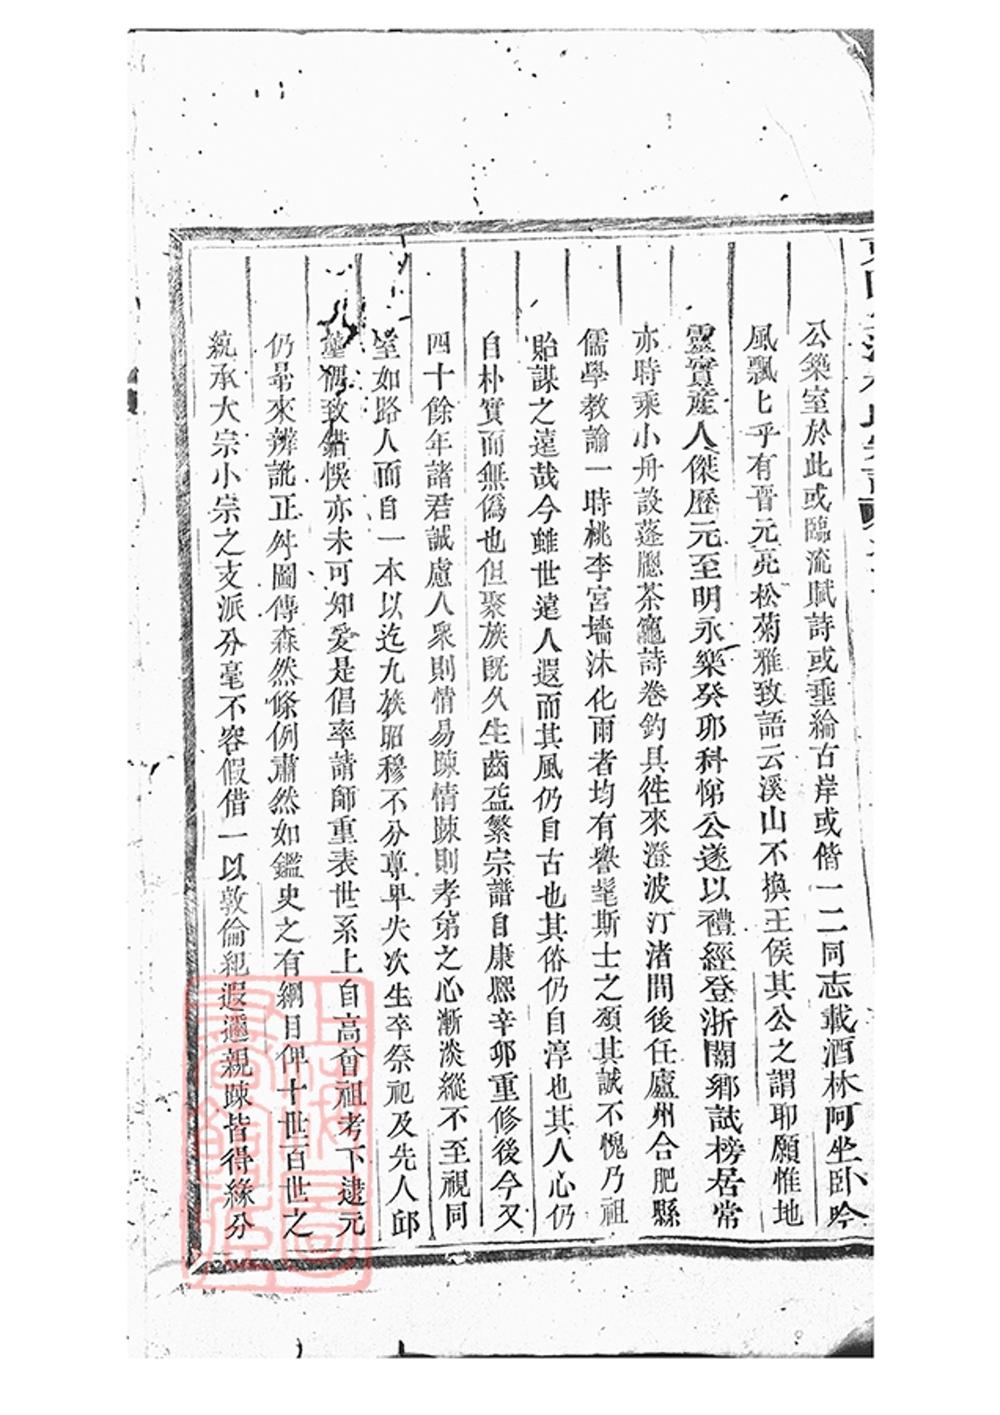 公築室於此或臨流賦詩或垂綸古岸或偕一二同志載酒林阿坐卧吟
風飄匕乎有晋元亮松菊雅致語云溪山不換王侯其公之謂耶願惟地
靈實産人傑歷元至明永樂癸夘科悌公遂以禮經登浙闈鄉試榜居常
亦時乘小舟設蓬牕茶竈詩巻釣具徃來澄波汀渚間後任廬州合肥縣
儒學教諭一時桃李宮墻沐化雨者均有譽髦斯士之頌其誠不愧乃祖
貽謀之遠哉今雖世遠人遐而其風仍自古也其俗仍自淳也其人心仍
自朴實而無僞也但聚族既久生齒益繁宗譜自康熙辛夘重修後今又
四十餘年諸君誠慮人衆則情易踈情踈則孝弟之心漸淡縱不至視同
如路人而自一本以迄九族昭穆不分尊卑失次生卒祭祀及先人邱
壟偶致錯悞亦未可知爰是倡率請師重表世系上自高曾祖考下逮元
仍晜來辨訛正舛圖傳森然條例肅然如鑑史之有綱目俾十世百世之
統承大宗小宗之支派分毫不容假借一以敦倫祀遐邇親踈皆得緣分